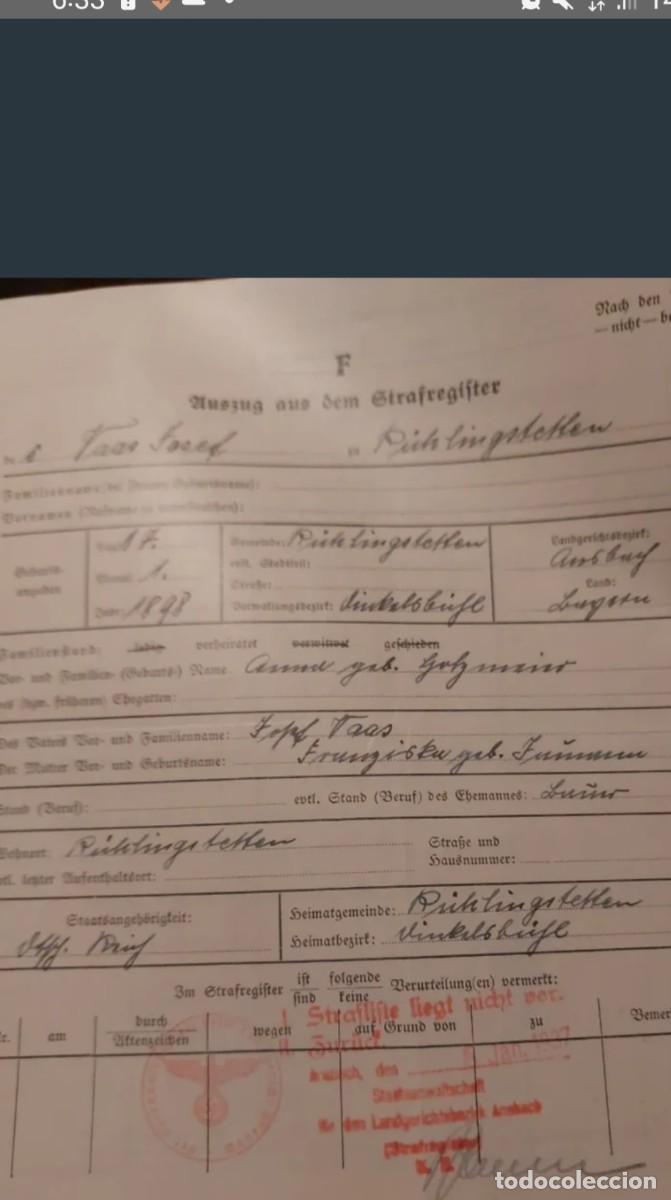 6:33
Nach den
—nicht—be
F
Auszug aus dem Strafregister
Vaas Josef in Rühlingstetten
Familienname (bei Frauen Geburtsname):
Vornamen (Rufname zu unterstreichen):
Geburts-
angaben
Tag: 17.
Monat: 1.
Jahr: 1898
Gemeinde: Rühlingstetten
evtl. Stadtteil:
Straße:
Verwaltungsbezirk: Dinkelsbühl
Landgerichtsbezirk:
Ansbach
Land:
Bayern
Familienstand: ledig verheiratet verwitwet geschieden
Vor- und Familien- (Geburts-) Name Anna geb. Gotzmeier
des (bzw. früheren) Ehegatten:
Des Vaters Vor- und Familienname: Josef Vaas
Der Mutter Vor- und Geburtsname: Franziska geb.
Stand (Beruf): evtl. Stand (Beruf) des Ehemannes: Bauer
Wohnort: Rühlingstetten
evtl. letzter Aufenthaltsort:
Straße und
Hausnummer:
Staatsangehörigkeit:
Dtsch. Reich
Heimatgemeinde: Rühlingstetten
Heimatbezirk: Dinkelsbühl
Im Strafregister ist/sind folgende/keine Verurteilung(en) vermerkt:
Nr. am durch wegen auf Grund von zu Bemer
Aktenzeichen
I. Strafliste liegt nicht vor.
II. Zurück.
Ansbach, den Jan. 1937
Staatsanwaltschaft
für den Landgerichtsbezirk Ansbach
(Strafregister)
todocoleccion